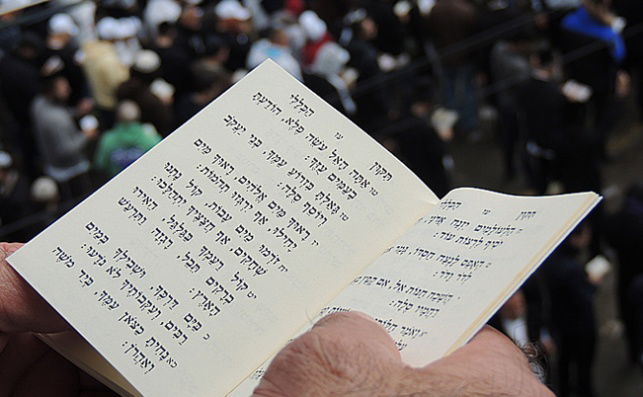 תקון עז הכללי
ח הלעולמים יזנח
יסיף לרצות עוד:
ט האפס לנצח חסדו, גמר
לדר ודר:
י השכח חנות אל, אם קפץ
רחמיו סלה:
תקון עז הכללי
טו אתה האל עשה פלא, הודעת
בעמים עזך:
טז גאלת בזרוע עמך, בני יעקב
ויוסף סלה:
יז ראוך מים אלהים, ראוך מים
יחילו, אף ירגזו תהמות:
יח זרמו מים עבות, קול נתנו
שחקים, אף חצציך יתהלכו:
יט קול רעמך בגלגל, האירו
ברקים תבל, רגזה ותרעש
הארץ:
כ בים דרכך, ושבילך במים
רבים, ועקבותיך לא נדעו:
כא נחית כצאן עמך, ביד משה
ואהרן: